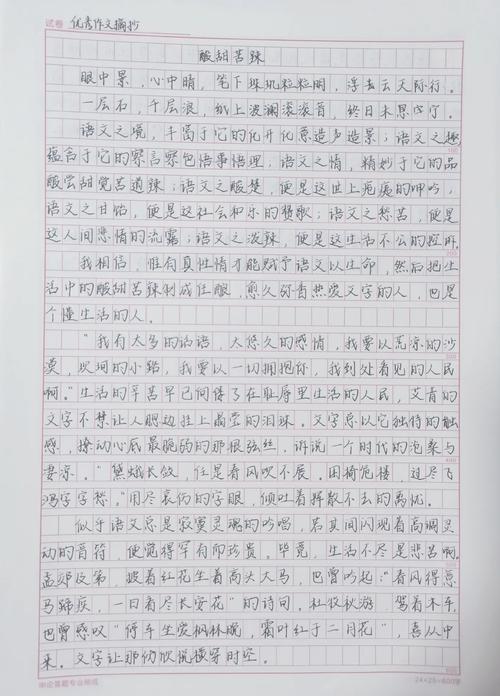 试卷 优秀作文摘抄
酸甜苦辣
眼中景，心中晴，笔下珠玑粒粒明，浮去云天际行。
一层石，千层浪，纸上波澜滚滚首，终日未思
语文之境，于它的化开化意造声造景；语文之趣
蕴含于它的察言察色悟事悟理；语文之情，精妙于它的品
酸尝甜觉苦道辣；语文之酸楚，便是这世上疮痍的呻吟；
语文之甘饴，便是这社会和乐的赞歌；语文之愁苦，便是
这人间悲情的流露；语文之泼辣，便是这生活不公的控诉。
我相信，惟有真性情才能赋予语文以生命，然后把生
活中的酸甜苦辣制成佳酿，愈久弥香热爱文字的人，也是
个懂生活的人。
“我有太多的话语，太悠久的感情，我要以荒凉的沙
漠，坎坷的小路，我要以一切拥抱你，我到处看见的人民
啊。”生活的辛苦早已佝偻了在耻辱里生活的人民，艾青的
文字不禁让人腮边挂上晶莹的泪珠。文字总以它独特的触
感，撩动心底最脆弱的那根弦丝，诉说一个时代的沧桑与
凄凉。“黛蛾长敛，任是春风吹不展。困倚危楼，过尽飞
鸿字字愁。”用尽哀伤的字眼，倾吐着挥散不去的离忧。
似乎语文总是寂寞灵魂的吟唱，若其间闪现着高调灵
动的音符，便觉得罕有而珍贵。毕竟，生活不尽是悲苦啊。
孟郊及第，披着红花坐着高头大马，也曾吟起：“春风得意
马蹄疾，一日看尽长安花”的诗句。杜牧秋游，驾着木车，
也曾感叹“停车坐爱枫林晚，霜叶红于二月花”，喜从中
来。文字让那份欣悦横穿时空。
申论答题专业格纸 24×25=600字